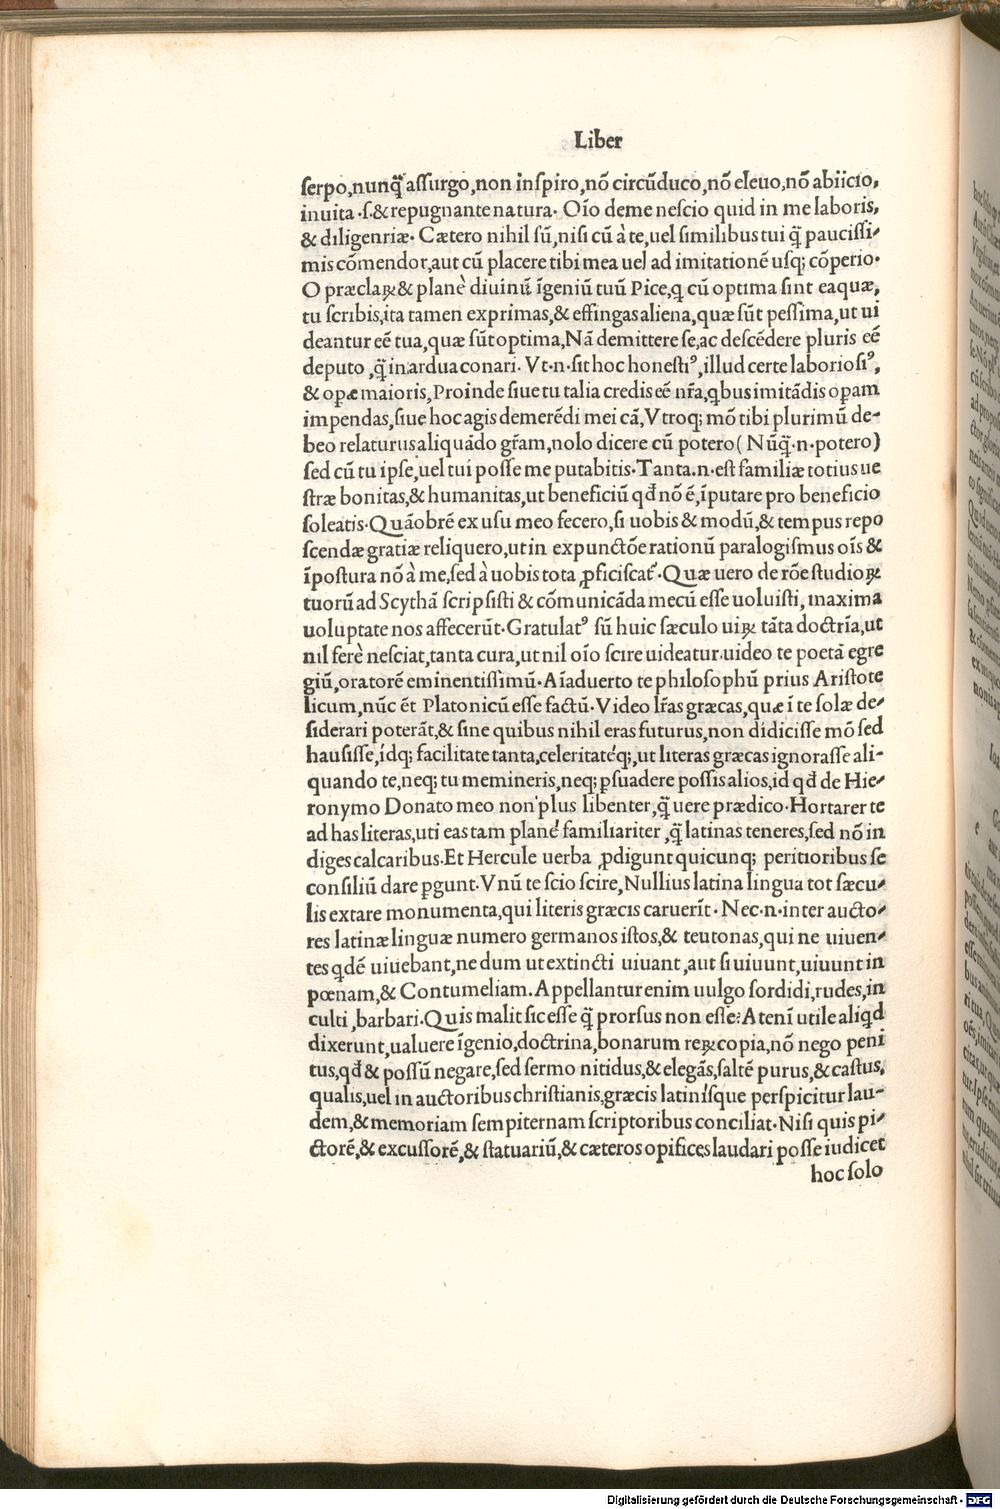 Liber
serpo,nunq̃ assurgo,non inspiro,nõ circũduco,nõ eleuo,nõ abiicio,
inuita .s.&repugnante natura. Oĩo deme nescio quid in me laboris,
& diligenriæ. Cætero nihil sũ,nisi cũ à te,uel similibus tui q̃ paucissi-
mis cõmendor,aut cũ placere tibi mea uel ad imitationẽ usq; cõperio.
O præclaꝝ & planè diuinũ ĩgeniũ tuũ Pice,q cũ optima sint ea quæ,
tu scribis,ita tamen exprimas,& effingas aliena,quæ sũt pessima,ut ui
deantur eẽ tua,quæ sũt optima,Nã demittere se,ac descẽdere pluris eẽ
deputo ,q̃ in ardua conari. Vt.n.sit hoc honestiꝰ,illud certe laboriosiꝰ,
& opæ maioris,Proinde siue tu talia credis eẽ nr̃a,qbus imitãdis oꝑam
impendas,siue hoc agis demerẽdi mei cã,Vtroq; mõ tibi plurimũ de-
beo relaturus aliquãdo gr̃am,nolo dicere cũ potero( Nũq̃.n.potero)
sed cũ tu ipse,uel tui posse me putabitis.Tanta.n.est familiæ totius ue
stræ bonitas,& humanitas,ut beneficiũ qđ nõ ẽ,ĩputare pro beneficio
soleatis.Quãobrẽ ex usu meo fecero,si uobis & modũ,& tempus repo
scendæ gratiæ reliquero,ut in expunctõe rationũ paralogismus oĩs &
ĩpostura nõ à me,sed à uobis tota ꝓficiscatᷣ.Quæ uero de rõe studioꝝ
tuorũ ad Scythã scripsisti & cõmunicãda mecũ esse uoluisti, maxima
uoluptate nos affecerũt.Gratulatꝰ sũ huic sæculo uiꝝ tãta doctrĩa,ut
nil ferè nesciat,tanta cura,ut nil oĩo scire uideatur.uideo te poetã egre
giũ,oratorẽ eminentissimũ. Aĩaduerto te philosophũ prius Aristote
licum,nũc ẽt Platonicũ esse factũ.Video lr̃as græcas,quæ ĩ te solæ de-
siderari poterãt,& sine quibus nihil eras futurus,non didicisse mõ sed
hausisse,idq; facilitate tanta,celeritateq́;,ut literas græcas ignorasse ali-
quando te,neq; tu memineris,neq; ꝑsuadere possis alios,id qđ de Hie-
ronymo Donato meo non plus libenter,q̃ uere prædico.Hortarer te
ad has literas,uti eas tam planè familiariter ,q̃ latinas teneres,sed nõ in
diges calcaribus.Et Hercule uerba ꝓdigunt quicunq; peritioribus se
consiliũ dare ꝑgunt.Vnũ te scio scire,Nullius latina lingua tot sæcu-
lis extare monumenta,qui literis græcis caruerĩt. Nec.n.inter aucto-
res latinæ linguæ numero germanos istos,& teutonas,qui ne uiuen-
tes qdẽ uiuebant,ne dum ut extincti uiuant,aut si uiuunt,uiuunt in
pœnam,& Contumeliam.Appellantur enim uulgo sordidi,rudes,in
culti ,barbari.Quis malit sic esse q̃ prorsus non esse:Atenĩ utile aliqd
dixerunt,ualuere ĩgenio,doctrina,bonarum reꝝ copia,nõ nego peni
tus,qđ & possũ negare,sed sermo nitidus,& elegãs,saltẽ purus,& castus,
qualis,uel in auctoribus christianis,græcis latinisque perspicitur lau-
dem,& memoriam sempiternam scriptoribus conciliat.Nisi quis pi-
ctorẽ,& excussorẽ,& statuariũ,& cæteros opifices laudari posse iudicet
hoc solo
Digitalisierung gefördert durch die Deutsche Forschungsgemeinschaft - DFG